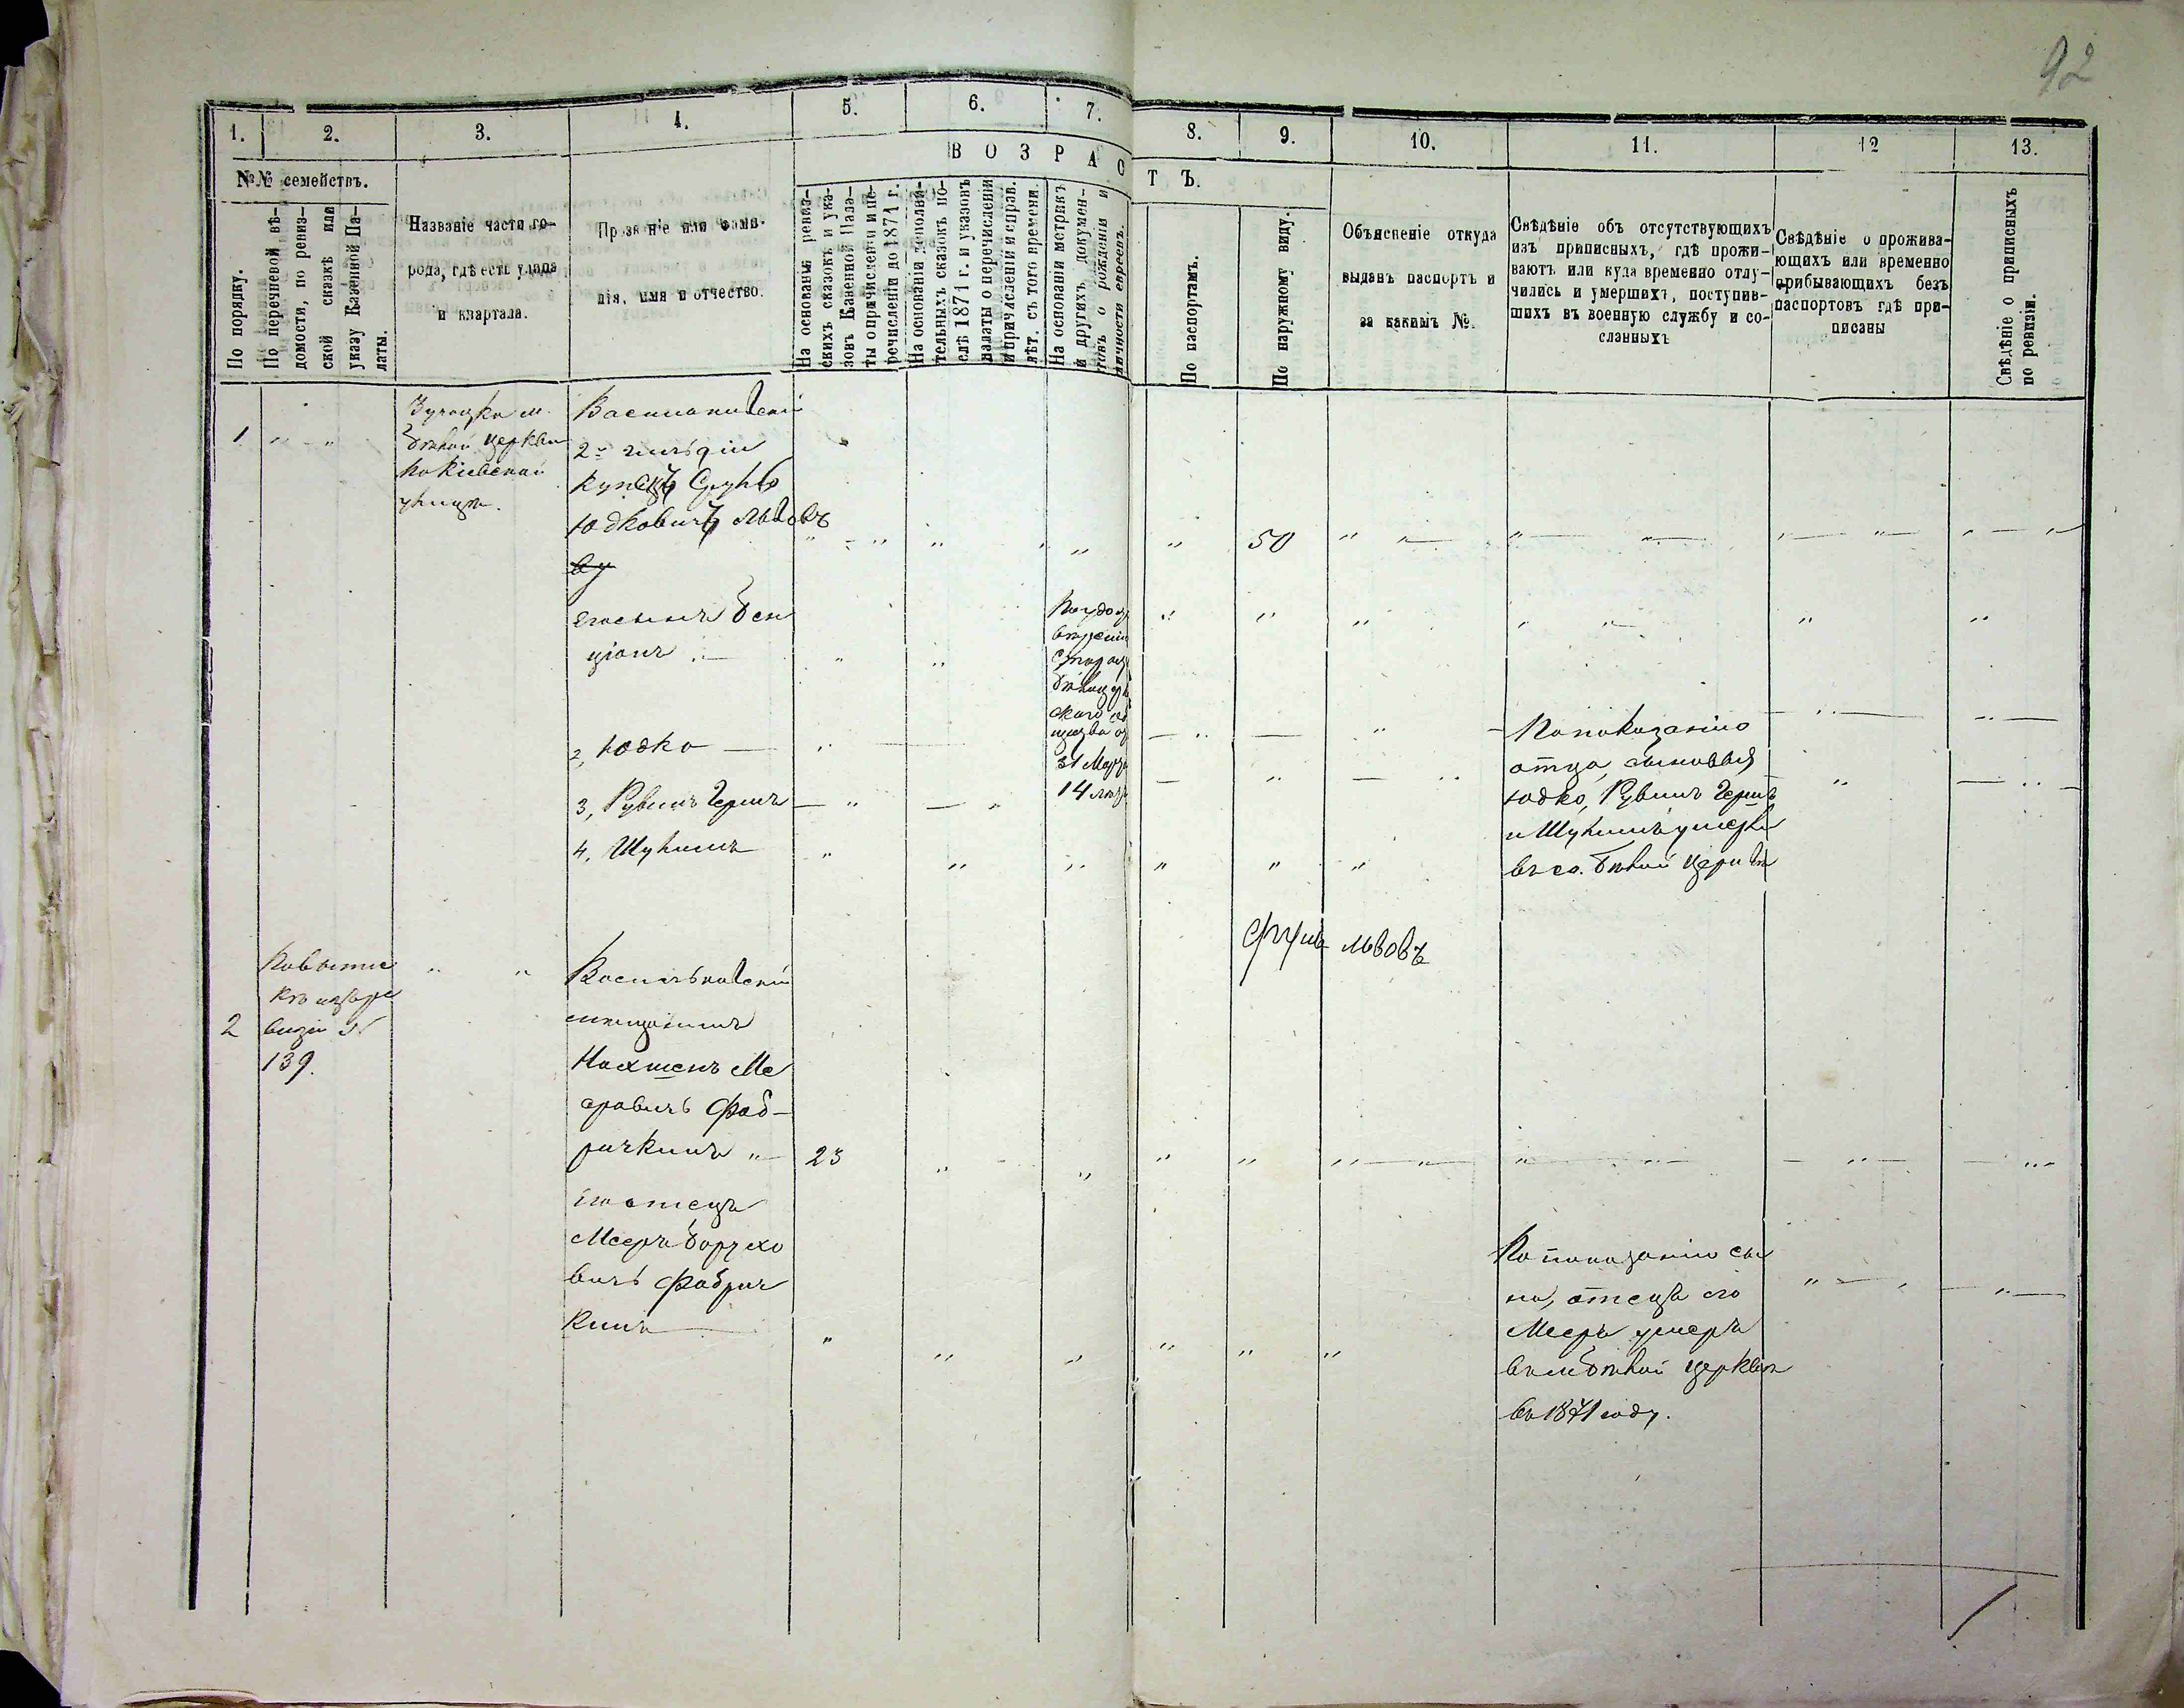 92
1.
2.
3.
4.
5.
6.
7.
8.
9.
10.
11.
12
13.
В О З Р А С Т Ъ.
№№ семействъ.
По порядку.
По перечневой вѣ-
домости, по ревиз-
ской сказкѣ или
указу Казенной Па-
латы.
Названіе части го-
рода, гдѣ есть улица
и квартала.
Прозваніе или фами-
лія, имя и отчество.
На основаніи ревиз-
скихъ сказокъ и ука-
зовъ Казенной Пала-
ты о причисленіи и пе-
речисленіи до 1871 г.
На основаніи дополни-
тельныхъ сказокъ по-
слѣ 1871 г. и указовъ
палаты о перечисленіи
и причисленіи и справ.
лѣт. съ того времени.
На основаніи метрикъ
и другихъ докумен-
товъ о рожденіи и
личности евреевъ.
По паспортамъ.
По наружному виду.
Объясненіе откуда
выданъ паспортъ и
за какимъ №.
Свѣдѣніе объ отсутствующихъ
изъ приписныхъ, гдѣ прожи-
ваютъ или куда временно отлу-
чились и умершихъ, поступив-
шихъ въ военную службу и со-
сланныхъ
Свѣдѣніе о прожива-
ющихъ или временно
прибывающихъ безъ
паспортовъ гдѣ при-
писаны
Свѣдѣніе о приписныхъ
по ревизіи.
1
м.
Бѣлой Церкви
по Кіевской
улицѣ.
Васильковскій
2й гильдіи
купецъ Сруль
Юдковичъ Львовъ
50
его сынъ Бен
ціонъ
2, Юдко
3, Рувинъ Гершъ
4, Шулимъ
По удосто
вѣренію
Бѣлоцерк
скаго об
щества отъ
31 Марта
14 лѣтъ
По показанію
отца, сыновья
Юдко, Рувинъ Гершъ
и Шулимъ умерли
въ м. Бѣлой Церквѣ
Сруль Львовъ
2
139.
Васильковскій
мѣщанинъ
Нахманъ Ме
еровичъ Фаб-
ричкинъ
23
его отецъ
Мееръ Борухо
вичъ Фабрич
кинъ
По показанію сы
на, отецъ его
Мееръ умеръ
въ м. Бѣлой Церквѣ
въ 1871 году.